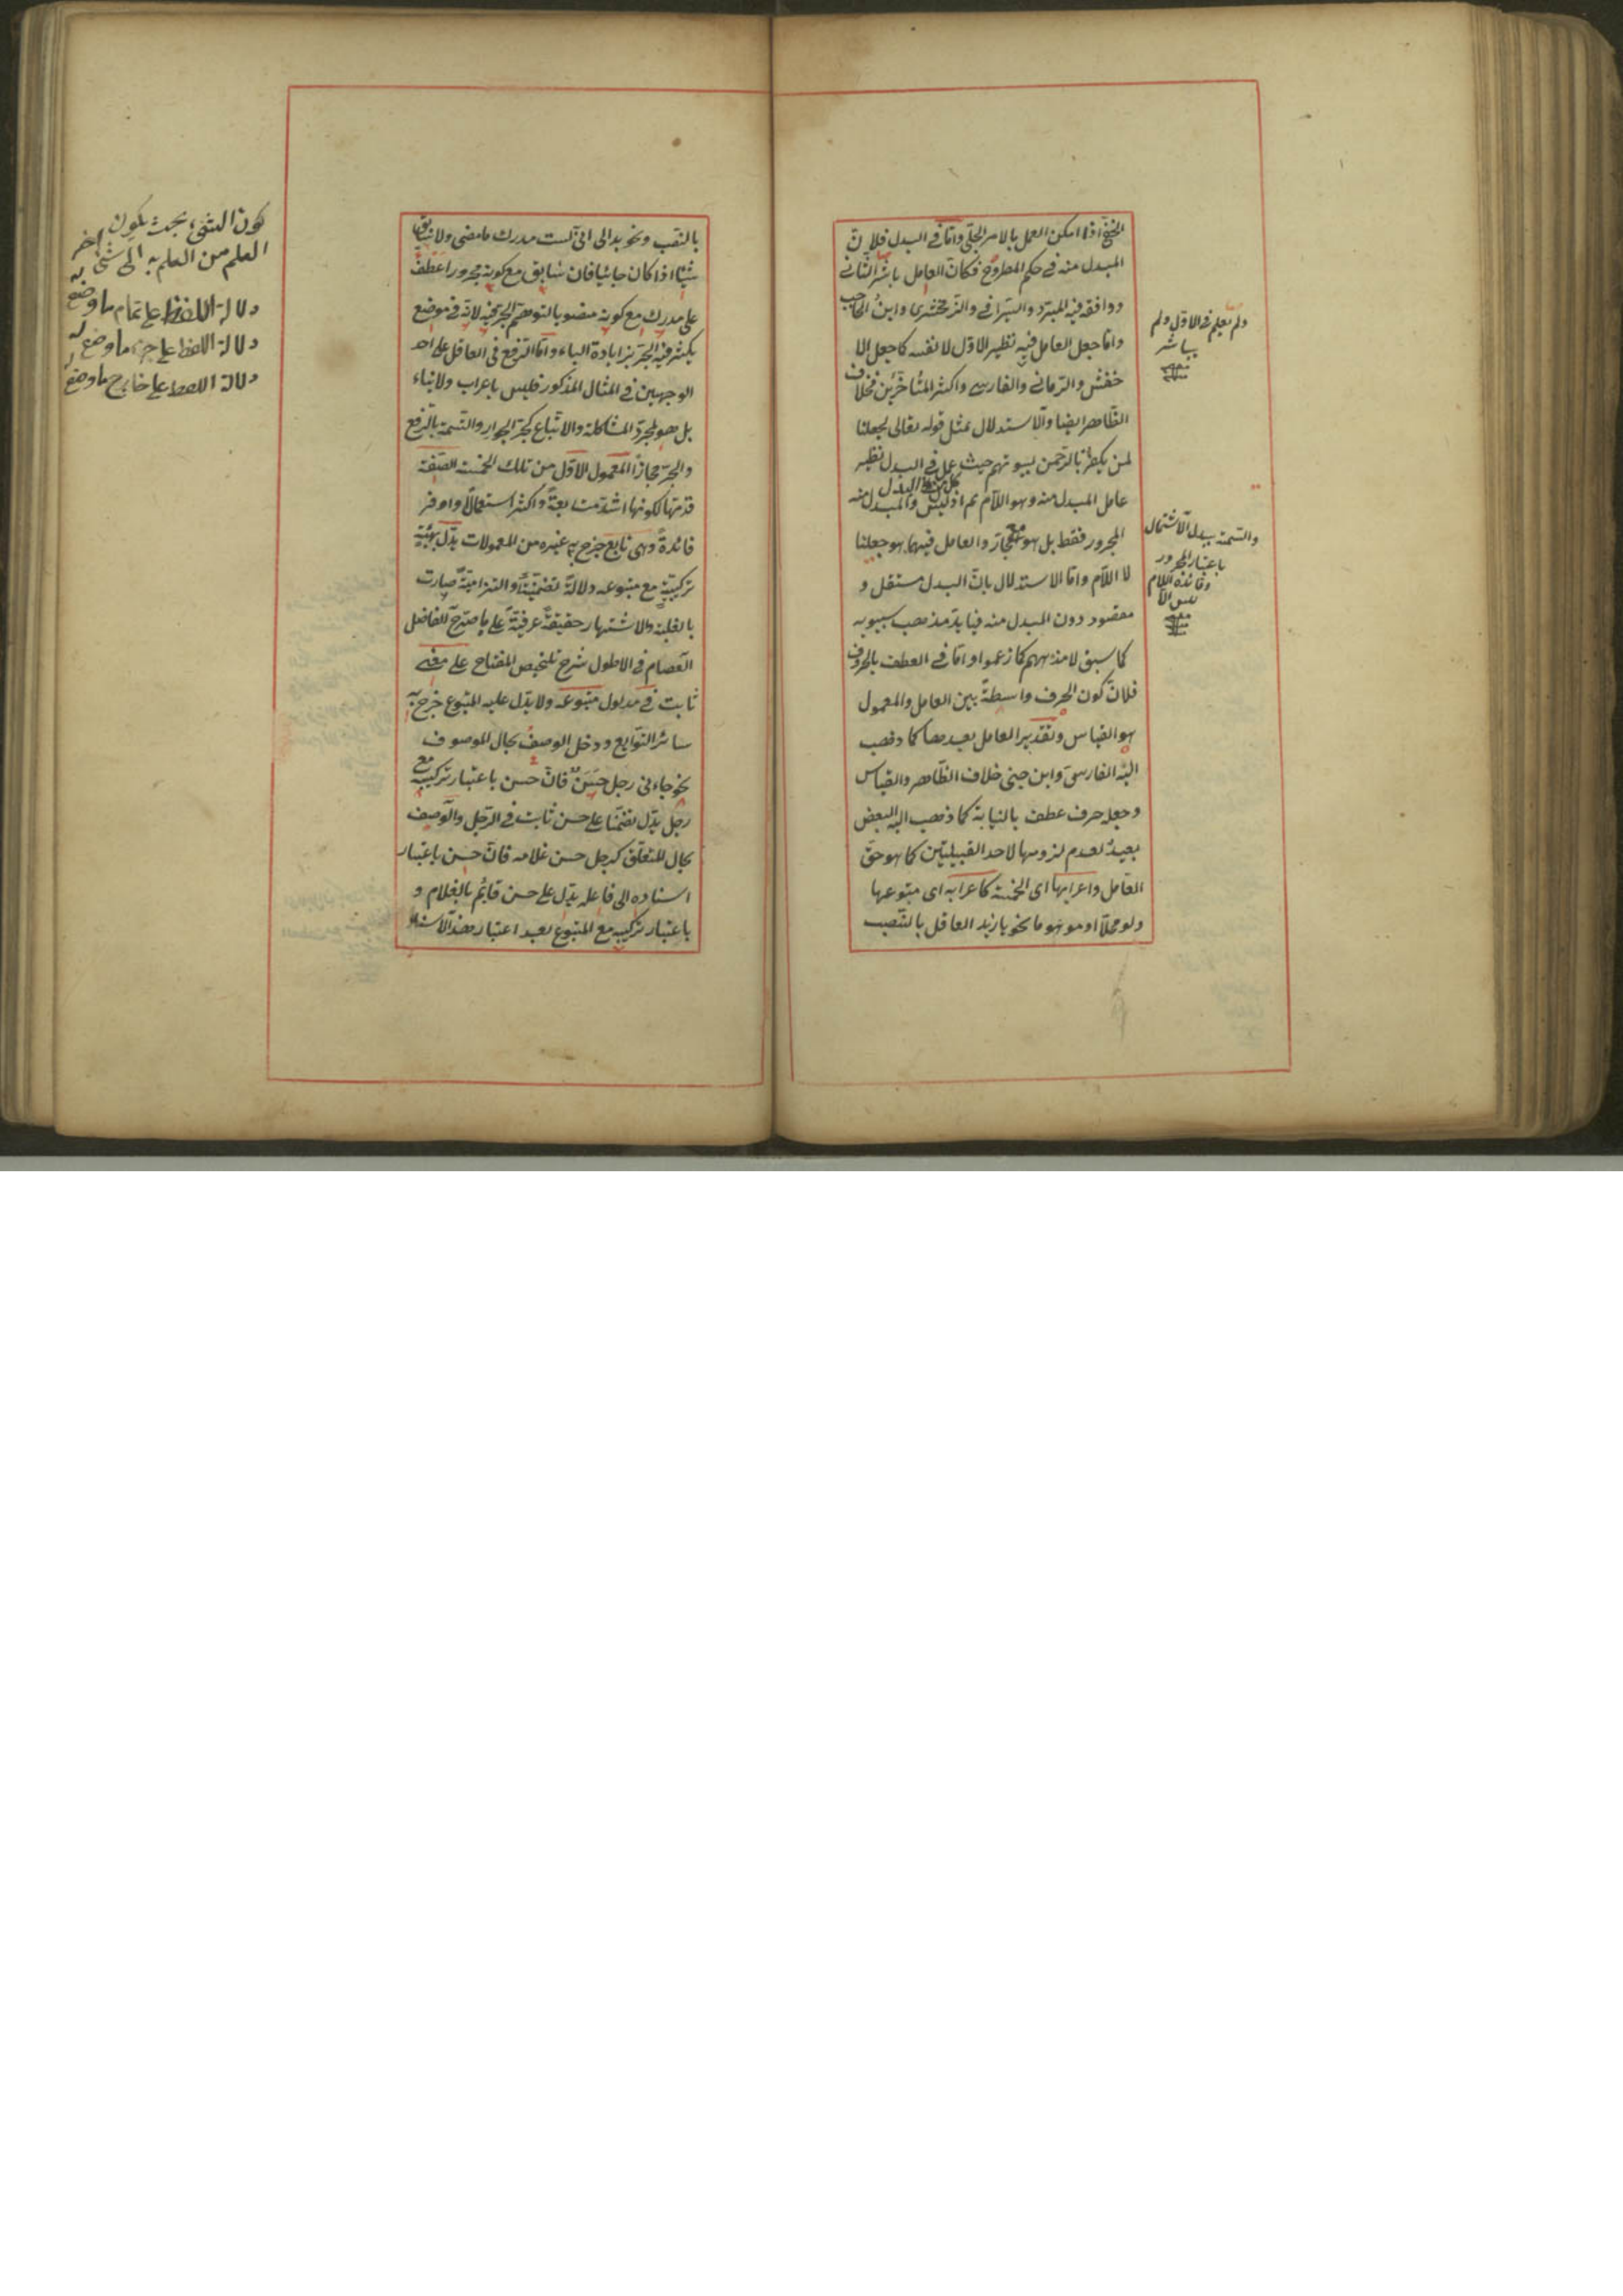 الخفي اذا امكن العمل بالامر الجلي واما في البدل فلان
المبدل منه في حكم المطروح فكان العامل باشر الثاني
ووافقه فيه المبرد والسيرافي والزمخشري وابن الحاجب
واما جعل العامل فيه نظير الاول لا نفسه كما جعل الا
خفش والرماني والفارسي واكثر المتأخرين فخلاف
الظاهر ايضا والاستدلال بمثل قوله تعالى لجعلنا
لمن يكفر بالرحمن لبيوتهم حيث عمل في البدل نظير
عامل المبدل منه وهو اللام اذ ليس البدل والمبدل منه
المجرور فقط بل هو مع الجار والعامل فيهما هو جعلنا
لا اللام واما الاستدلال بان البدل مستقل و
مقصود دون المبدل منه فيناسب مذهب سيبويه
كما سبق لا مذهبهم كما زعموا واما في العطف بالحروف
فلان كون الحرف واسطة بين العامل والمعمول
هو القياس وتقدير العامل بعدها كما ذهب
اليه الفارسي وابن جني خلاف الظاهر والقياس
وجعل حرف عطف بالنيابة كما ذهب اليه البعض
بعيد لعدم لزومها لاحد القبيلتين كما هو حق
العامل واعرابها اى الخمسة كاعرابه اى متبوعها
ولو محلا او موهوما نحو يا زيد العاقل بالنصب
ولم يعلم في الاول ولم
يباشر
منه
والتسمية ببدل الاشتمال
باعتبار المجرور
وفائدة اللام
ليس الا
منه
بالنصب ونحو بدا لي اني لست مدرك ما مضى ولا سابق
شيئا اذا كان جائيا فان سابق مع كونه مجرورا عطف
على مدرك مع كونه منصوبا لتوهم الجر فيه لانه في موضع
يكثر فيه الجر بزيادة الباء واما الرفع في العاقل على احد
الوجهين في المثال المذكور فليس باعراب ولا بناء
بل هو لمجرد المشاكلة والاتباع كجر الجوار والتسمية بالرفع
والجر مجازا المعمول الاول من تلك الخمسة الصفة
قدمها لكونها اشد متابعة واكثر استعمالا واوفر
فائدة وهى تابع خرج به غيره من المعمولات يدل بهيئة
تركيبية مع متبوعه دلالة تضمنية او التزامية صارت
بالغلبة والاشتهار حقيقة عرفية على ما صرح الفاضل
العصام في الاطول شرح تلخيص المفتاح على معنى
ثابت في مدلول متبوعه ولا يدل عليه المتبوع خرج به
سائر التوابع ودخل الوصف بحال الموصوف
نحو جاءنى رجل حسن فان حسن باعتبار تركيبه مع
رجل يدل تضمنا على حسن ثابت في الرجل والوصف
بحال المتعلق كرجل حسن غلامه فان حسن باعتبار
اسناده الى فاعله يدل على حسن قائم بالغلام و
باعتبار تركيبه مع المتبوع بعد اعتبار هذا الاسناد
كون الشئ بحيث يكون
العلم من العلم به الى شئ اخر
دلالة اللفظ على تمام ما وضع له
دلالة اللفظ على جزء ما وضع له
دلالة اللفظ على خارج ما وضع له